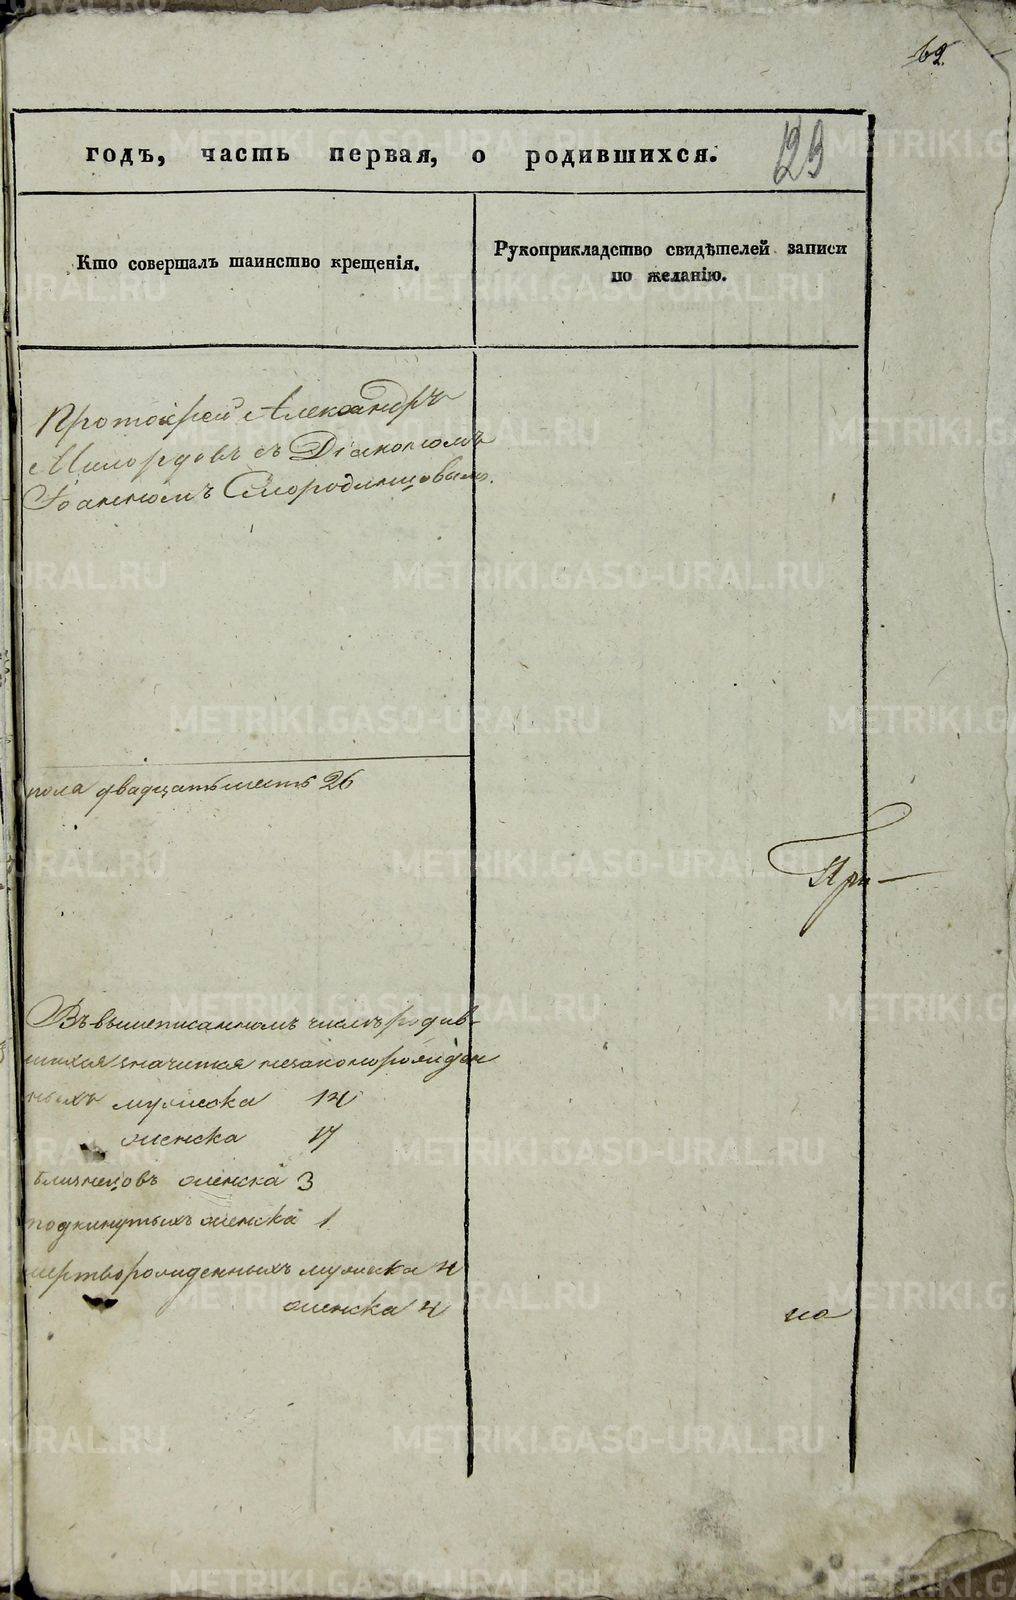 62.
129
годъ, часть первая, о родившихся.
Кто совершалъ таинство крещенія.
Рукоприкладство свидѣтелей записи
по желанію.
Протоіерей Александръ
Милордовъ съ Діакономъ
Іоанномъ Смородинцовымъ.
пола двадцать шесть 26
При-
Въ вышеписанномъ числѣ родив-
шихся значится незаконорожден
ныхъ мужеска 14
женска 17
близнецовъ женска 3
подкинутыхъ женска 1
мертворожденныхъ мужеска 4
женска 4
но
METRIKI.GASO-URAL.RU